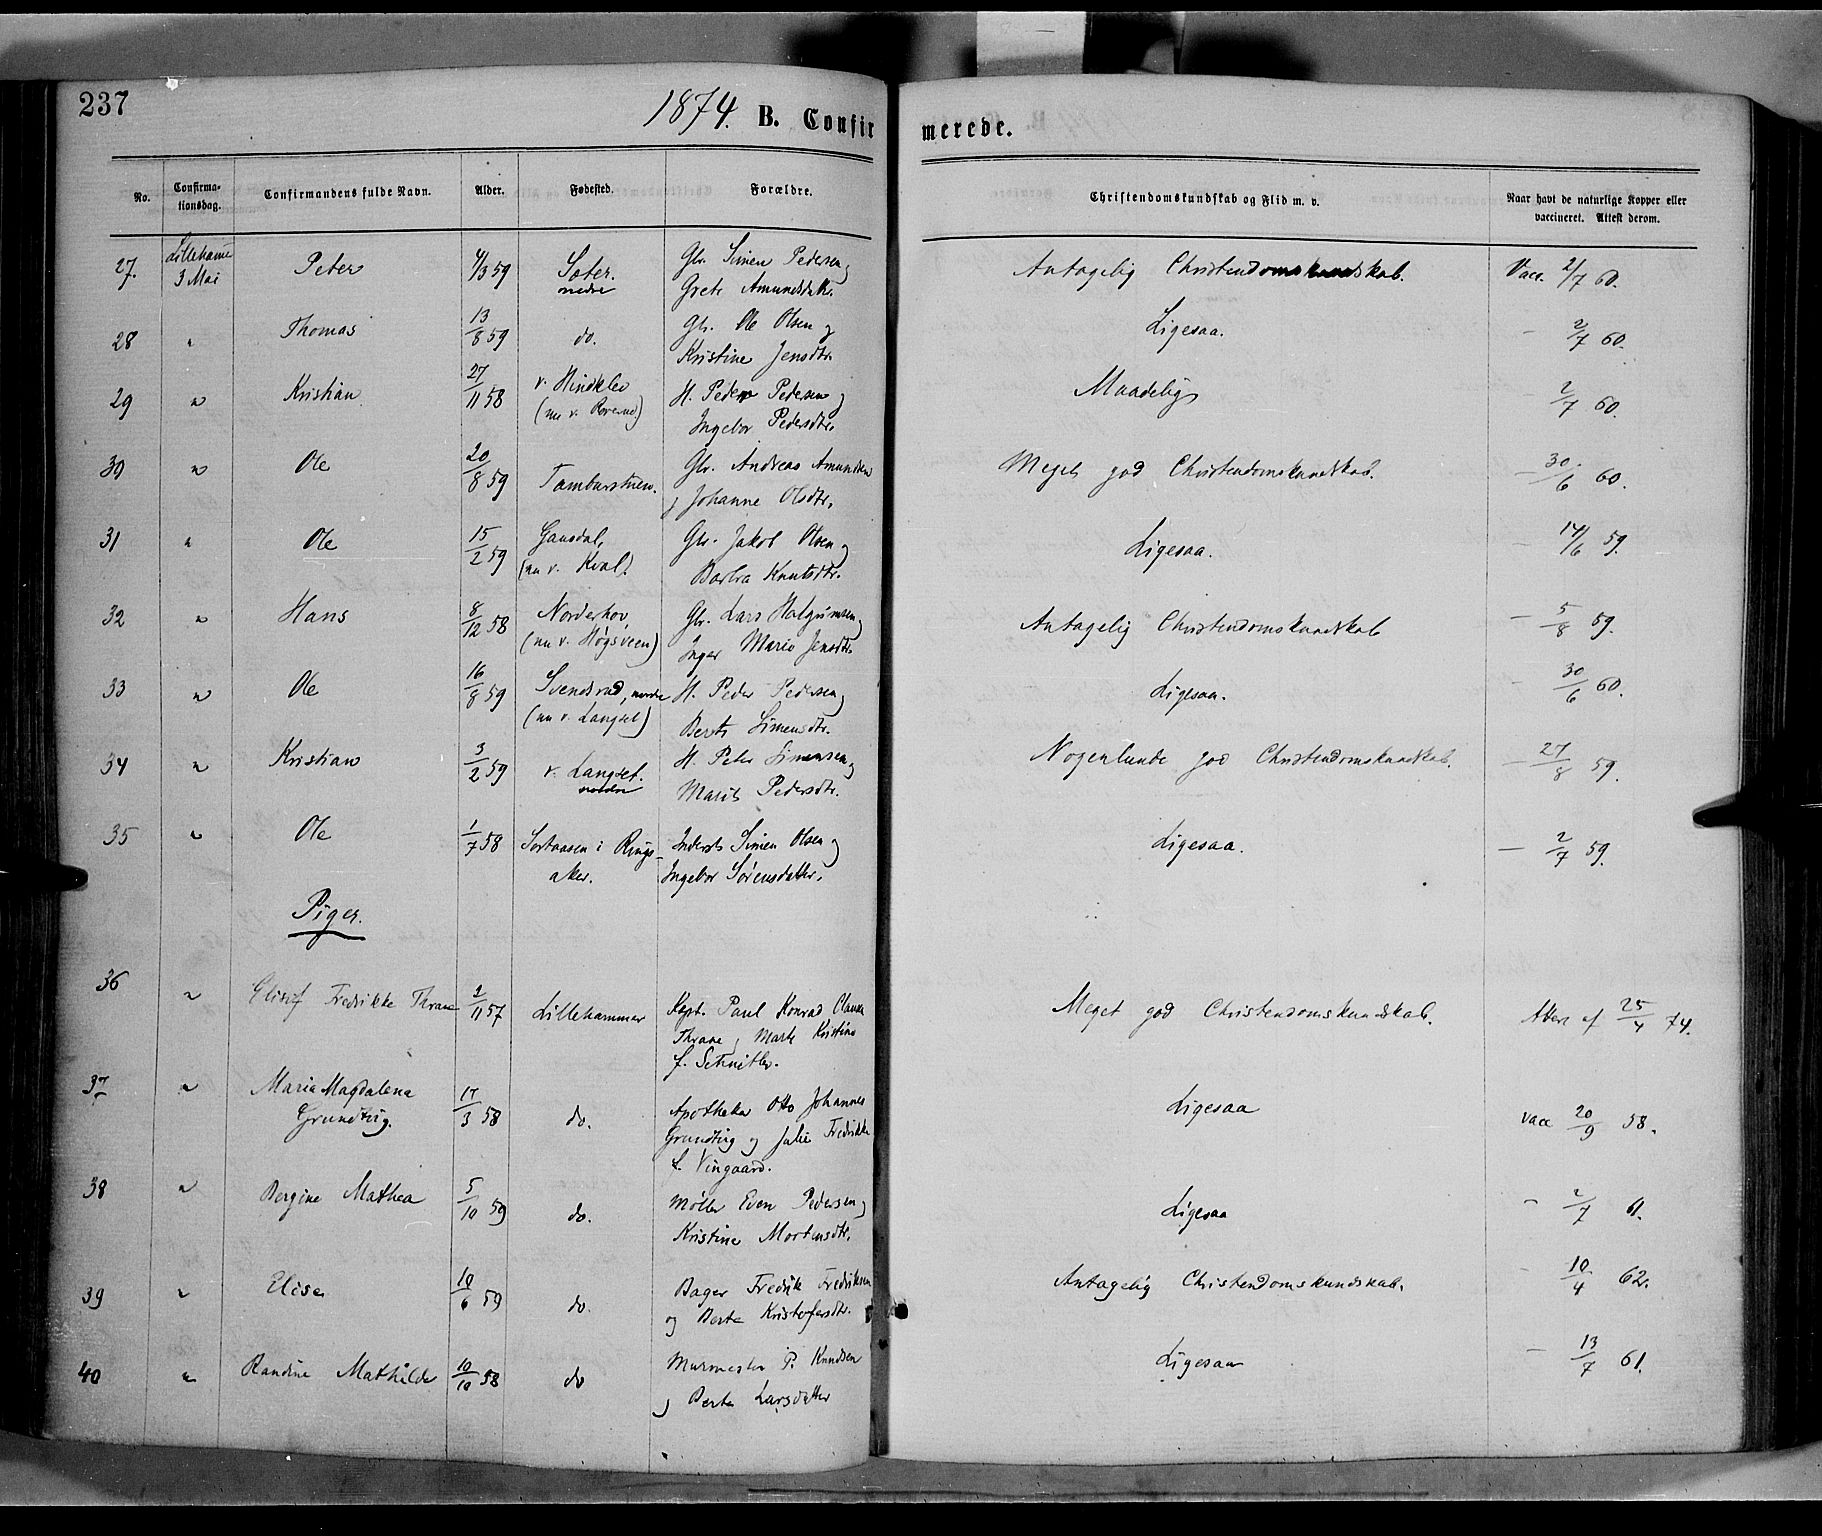 237
1874. B. Confirmerede.
No. Confirmationsdag. Confirmandens fulde Navn. Alder. Fødested. Forældre. Christendomskundskab og Flid m. v. Naar havt de naturlige Kopper eller vaccineret. Attest derom.
27. Lillehamr 3 Mai Peter 4/3 59 Sæter, nedre Gbr. Simen Pedersen og Grete Amundsdtr. Antagelig Christendomskundskab. Vacc. 2/7 60.
28 " Thomas 13/8 59 do. Gbr. Ole Olsen og Kristine Jensdtr. Ligesaa. – 2/7 60.
29 " Kristian 27/11 58 v. Hindklev (nu v. Roverud) H. Peder Pedersen og Ingebor Pedersdtr. Maadelig – 2/7 60.
30 " Ole 20/8 59 Tamburstuen. Gbr. Andreas Amundsen og Johanne Olsdtr. Meget god Christendomskundskab. – 30/6 60.
31 " Ole 15/2 59 Gausdal, (nu v. Kval). Gbr. Jakob Olsen og Barbra Knutsdtr. Ligesaa. – 14/6 59.
32 " Hans 8/12 58 Norderhov, (nu v. Høgsveen) Gbr. Lars Halgrimsen, Inger Marie Jensdtr. Antagelig Christendomskundskab – 5/8 59.
33 " Ole 16/8 59 Svendsrud, nordre (nu v. Langset) H. Peder Pedersen og Berth Simensdtr. Ligesaa. – 30/6 60.
34 " Kristian 3/2 59 v. Langset. nordre H. Peter Simensen og Marit Pedersdtr. Nogenlunde god Christendomskundskab. – 27/8 59.
35 " Ole 1/7 58 Sortaasen i Ringsaker. Inderst Simen Olsen og Ingebor Sørensdatter. Ligesaa. – 2/7 59.
Piger.
36 " Elisif Fredrikke Thrane 2/11 57 Lillehammer Kapt. Paul Konrad Clausen Thrane, Marte Kristine f. Schnitler. Meget god Christendomskundskab. Attest af 25/4 74.
37 " Maria Magdalena Grundtvig. 17/3 58 do. Apotheker Otto Johannes Grundtvig og Julie Fredrikke f. Vingaard. Ligesaa vacc 20/9 58.
38 " Bergine Mathea 5/10 59 do. Møller Even Pedersen og Kristine Mortensdtr. Ligesaa – 2/7 61.
39 " Elise 10/6 59 do. Bager Fredrik Fredriksen og Berte Kristofersdtr. Antagelig Christendomskundskab. – 10/4 62.
40 " Randine Mathilde 10/10 58 do Murmester P. Knudsen og Berte Larsdatter Ligesaa – 13/7 61.